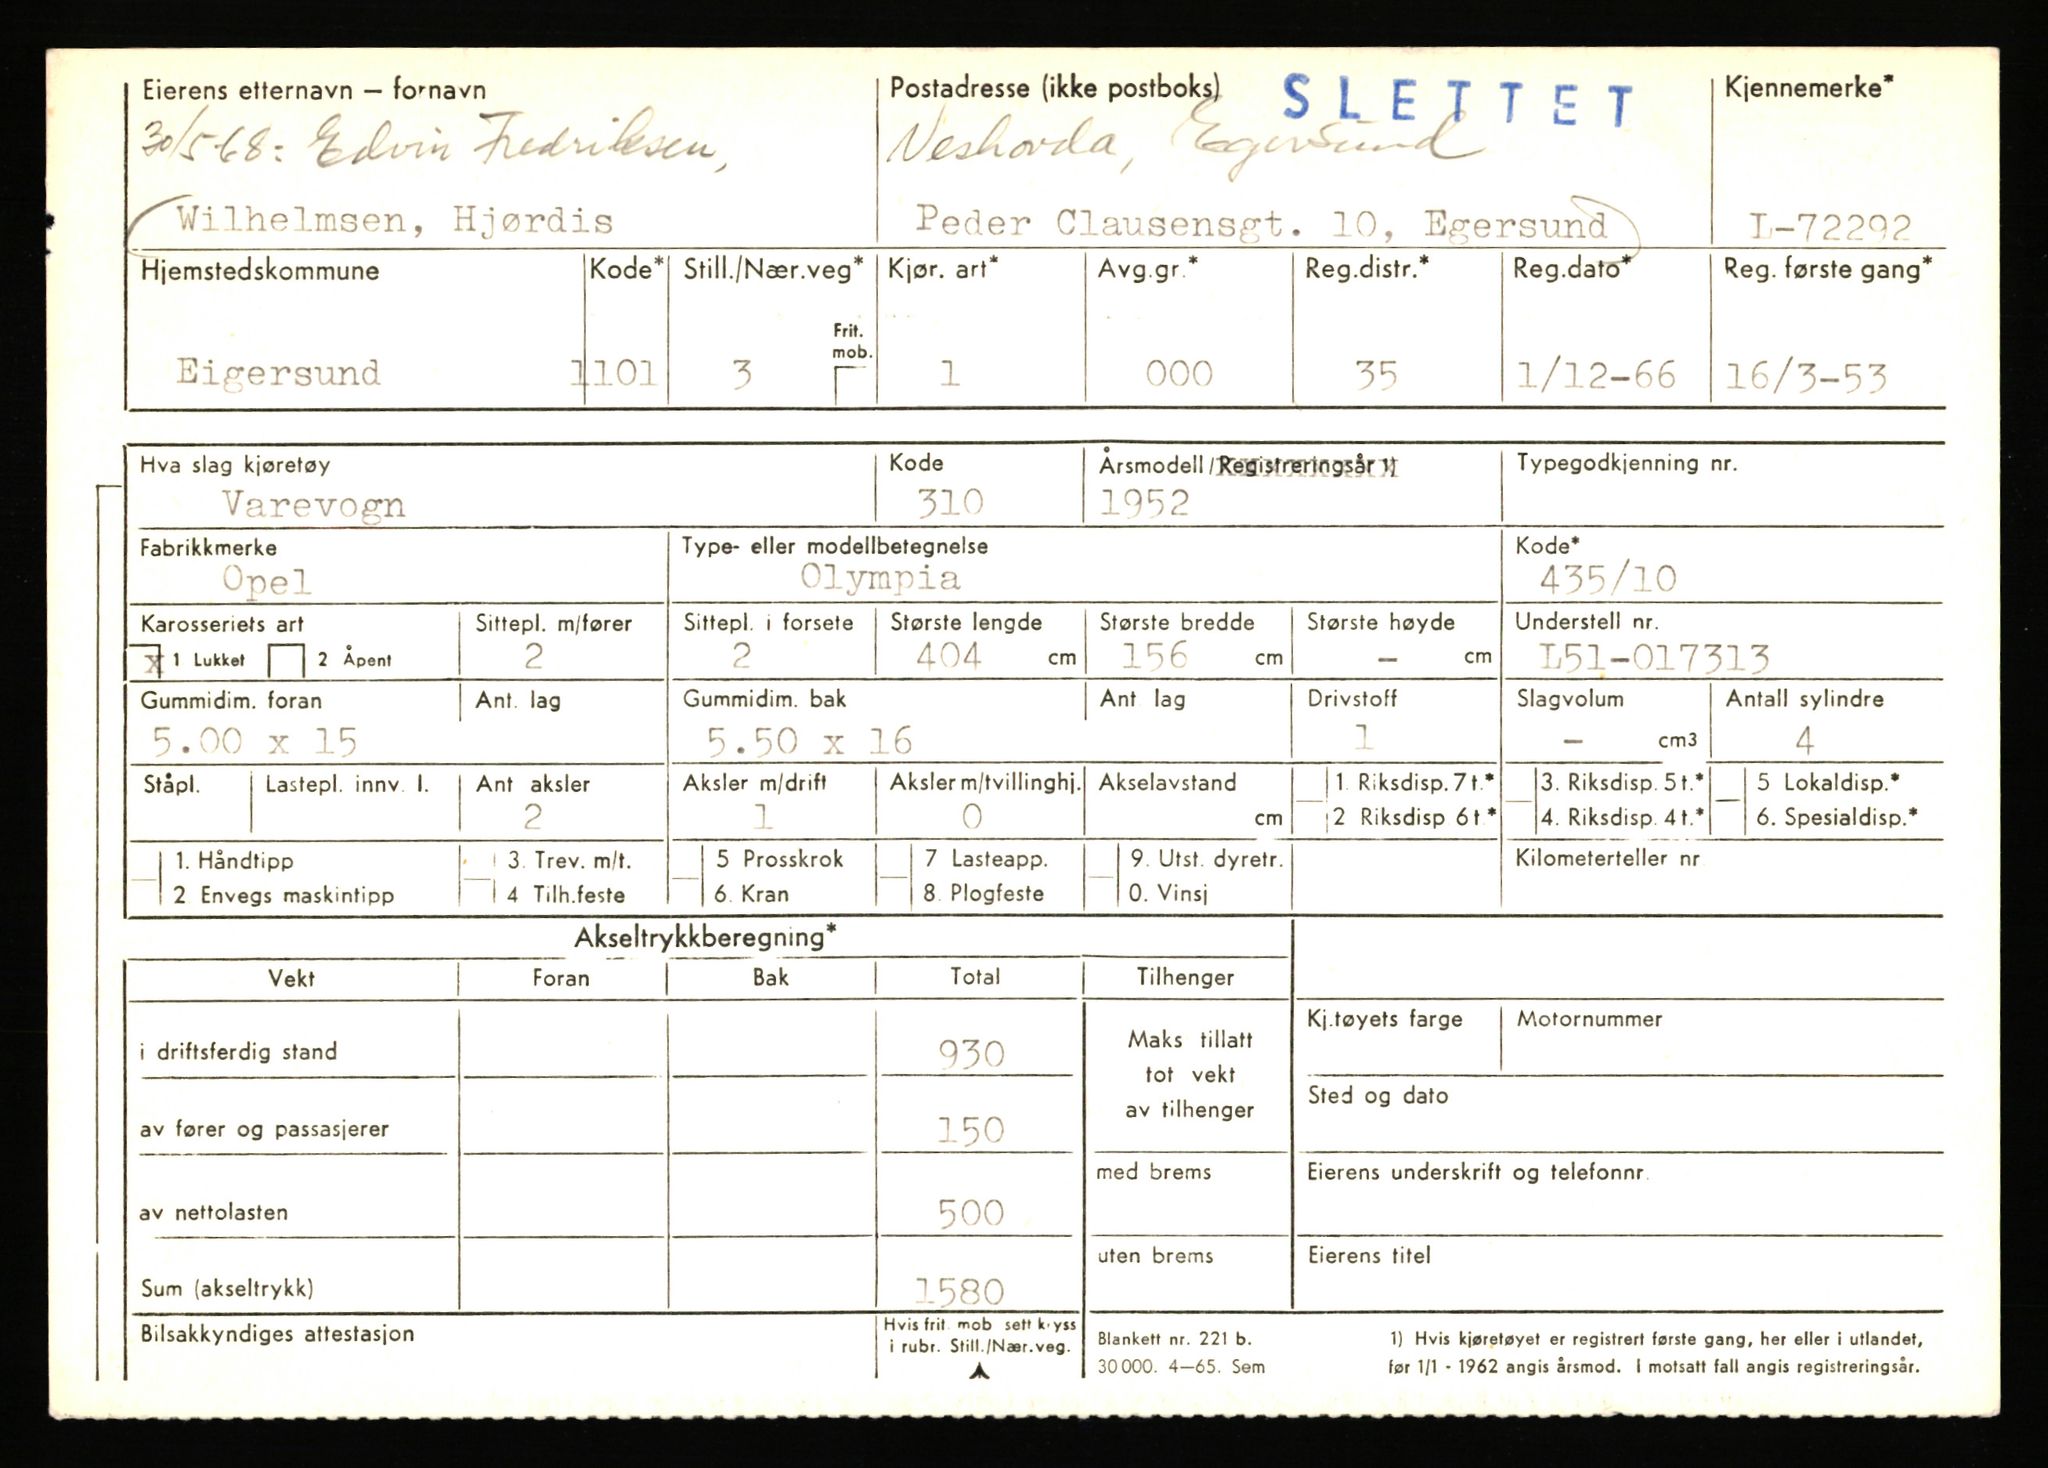 Eierens etternavn – fornavn
Postadresse (ikke postboks)
SLETTET
Kjennemerke*
30/5-68: Edvin Fredriksen,
Neshovda, Egersund
Wilhelmsen, Hjørdis
Peder Clausensgt. 10, Egersund
L-72292
Hjemstedskommune
Kode*
Still./Nær.veg*
Kjør. art*
Avg.gr.*
Reg.distr.*
Reg.dato*
Reg. første gang*
Frit. mob.
Eigersund
1101
3
1
000
35
1/12-66
16/3-53
Hva slag kjøretøy
Kode
Årsmodell/Registreringsår 1)
Typegodkjenning nr.
Varevogn
310
1952
Fabrikkmerke
Type- eller modellbetegnelse
Kode*
Opel
Olympia
435/10
Karosseriets art
Sittepl. m/fører
Sittepl. i forsete
Største lengde
Største bredde
Største høyde
Understell nr.
x 1 Lukket 2 Åpent
2
2
404 cm
156 cm
- cm
L51-017313
Gummidim. foran
Ant. lag
Gummidim. bak
Ant. lag
Drivstoff
Slagvolum
Antall sylindre
5.00 x 15
5.50 x 16
1
- cm3
4
Ståpl.
Lastepl. innv. l.
Ant aksler
Aksler m/drift
Aksler m/tvillinghj.
Akselavstand
1. Riksdisp. 7 t.*
3. Riksdisp. 5 t.*
5 Lokaldisp.*
2
1
0
cm
2 Riksdisp 6 t.*
4. Riksdisp. 4 t.*
6. Spesialdisp.*
1. Håndtipp
3. Trev. m/t.
5 Prosskrok
7 Lasteapp.
9. Utst. dyretr.
Kilometerteller nr
2 Envegs maskintipp
4 Tilh.feste
6. Kran
8. Plogfeste
0. Vinsj
Akseltrykkberegning*
Vekt
Foran
Bak
Total
Tilhenger
i driftsferdig stand
930
Maks tillatt
tot vekt
av tilhenger
Kj.tøyets farge
Motornummer
av fører og passasjerer
150
Sted og dato
med brems
Eierens underskrift og telefonnr.
av nettolasten
500
uten brems
Eierens titel
Sum (akseltrykk)
1580
Bilsakkyndiges attestasjon
Hvis frit. mob sett kryss
i rubr. Still./Nær.veg.
Blankett nr. 221 b.
30 000. 4—65. Sem
1) Hvis kjøretøyet er registrert første gang, her eller i utlandet,
før 1/1 - 1962 angis årsmod. I motsatt fall angis registreringsår.